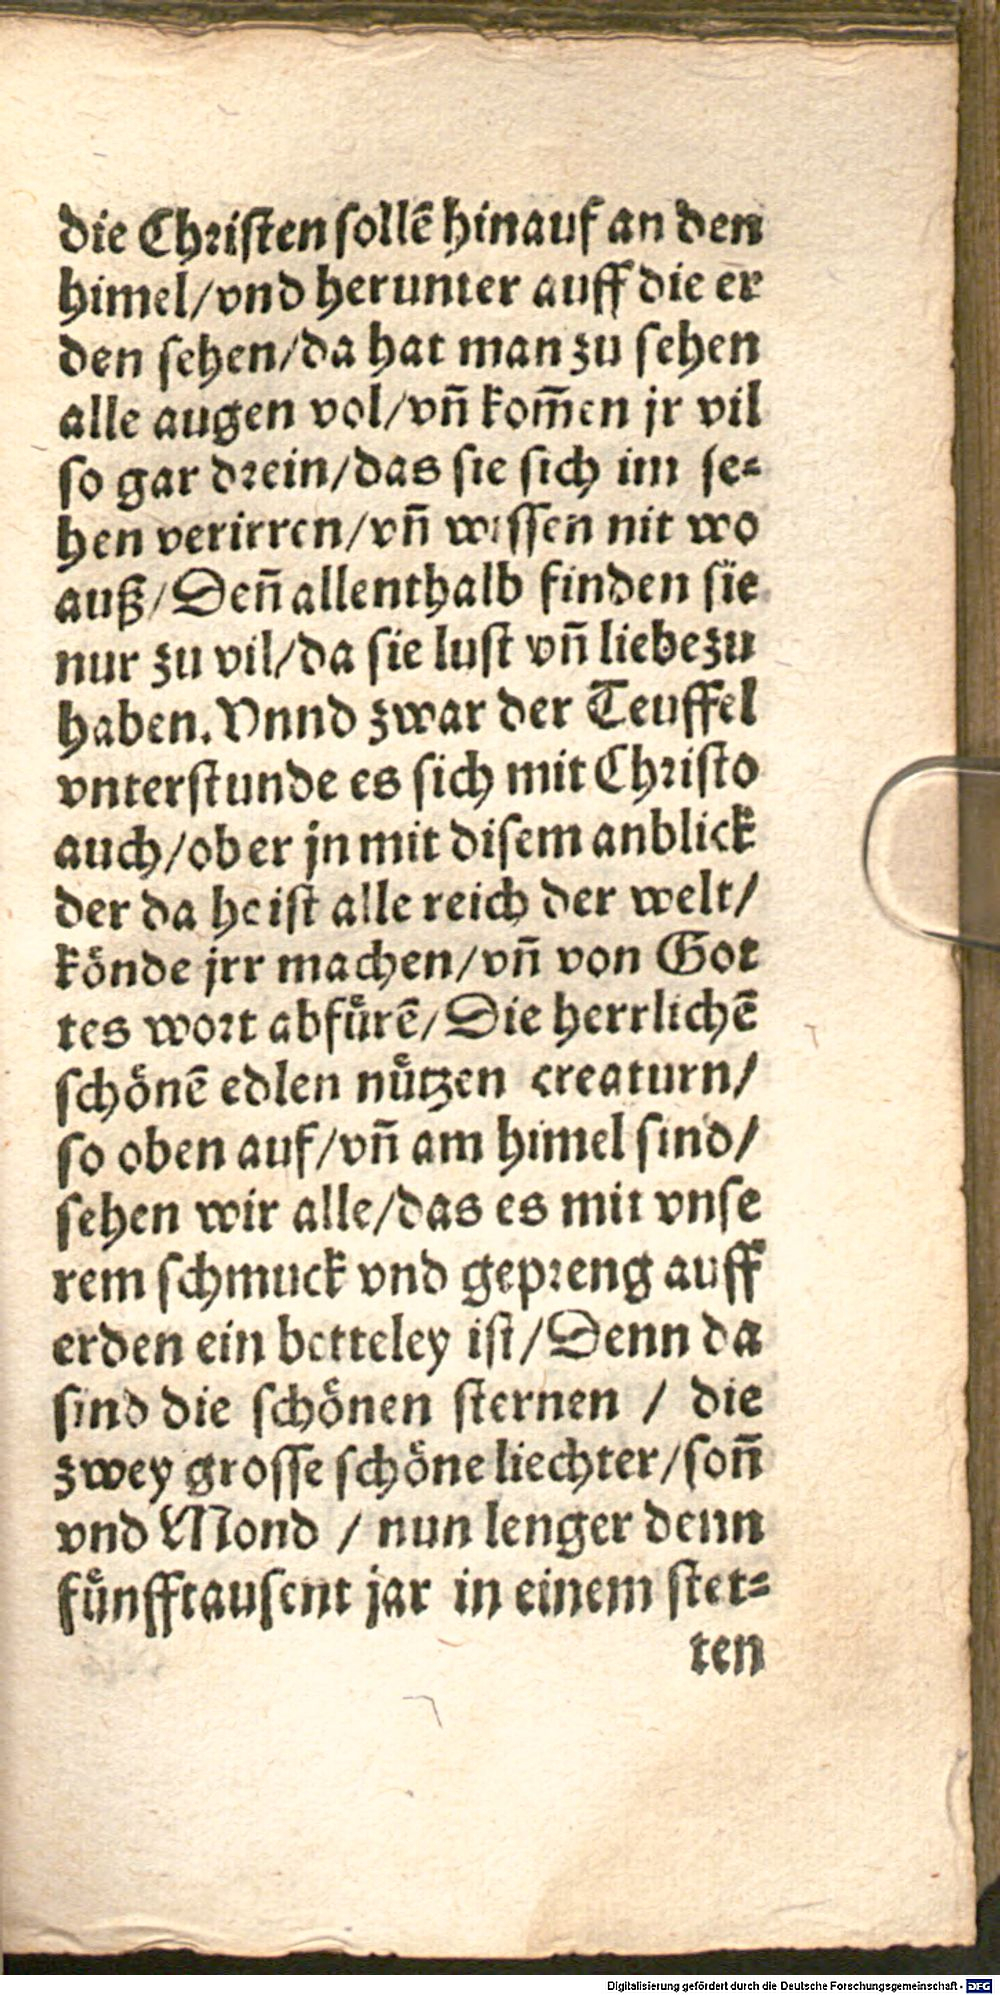 die Christen sollē hinauf an den
himel/vnd herunter auff die er
den sehen/da hat man zu sehen
alle augen vol/vn̄ kom̄en jr vil
so gar drein/das sie sich im se-
hen verirren/vn̄ wissen nit wo
auß/Den̄ allenthalb finden sie
nur zu vil/da sie lust vn̄ liebe zu
haben. Vnnd zwar der Teuffel
vnterstunde es sich mit Christo
auch/ob er jn mit disem anblick
der da heist alle reich der welt/
koͤnde jrr machen/vn̄ von Got
tes wort abfuͤrē/Die herrlichē
schoͤnē edlen nuͤtzen creaturn/
so oben auf/vn̄ am himel sind/
sehen wir alle/das es mit vnse
rem schmuck vnd gepreng auff
erden ein betteley ist/Denn da
sind die schoͤnen sternen / die
zwey grosse schoͤne liechter/son̄
vnd Mond / nun lenger denn
fuͤnfftausent jar in einem stet-
ten
Digitalisierung gefördert durch die Deutsche Forschungsgemeinschaft - DFG